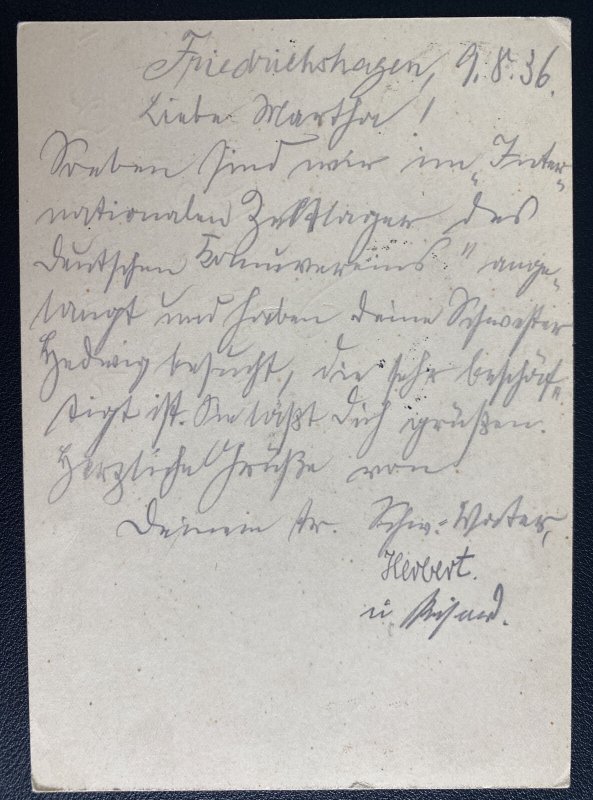 Friedrichshagen, 9.8.36.
Liebe Martha!
Soeben sind wir im „Inter-
nationalen Zeltlager des
Deutschen Kanuvereins" ange-
langt und haben Deine Schwester
Hedwig besucht, die sehr beschäf-
tigt ist. Sie läßt Dich grüßen.
Herzliche Grüße von
Deinem tr. Schw.-Vater,
Herbert.
u. Richard.